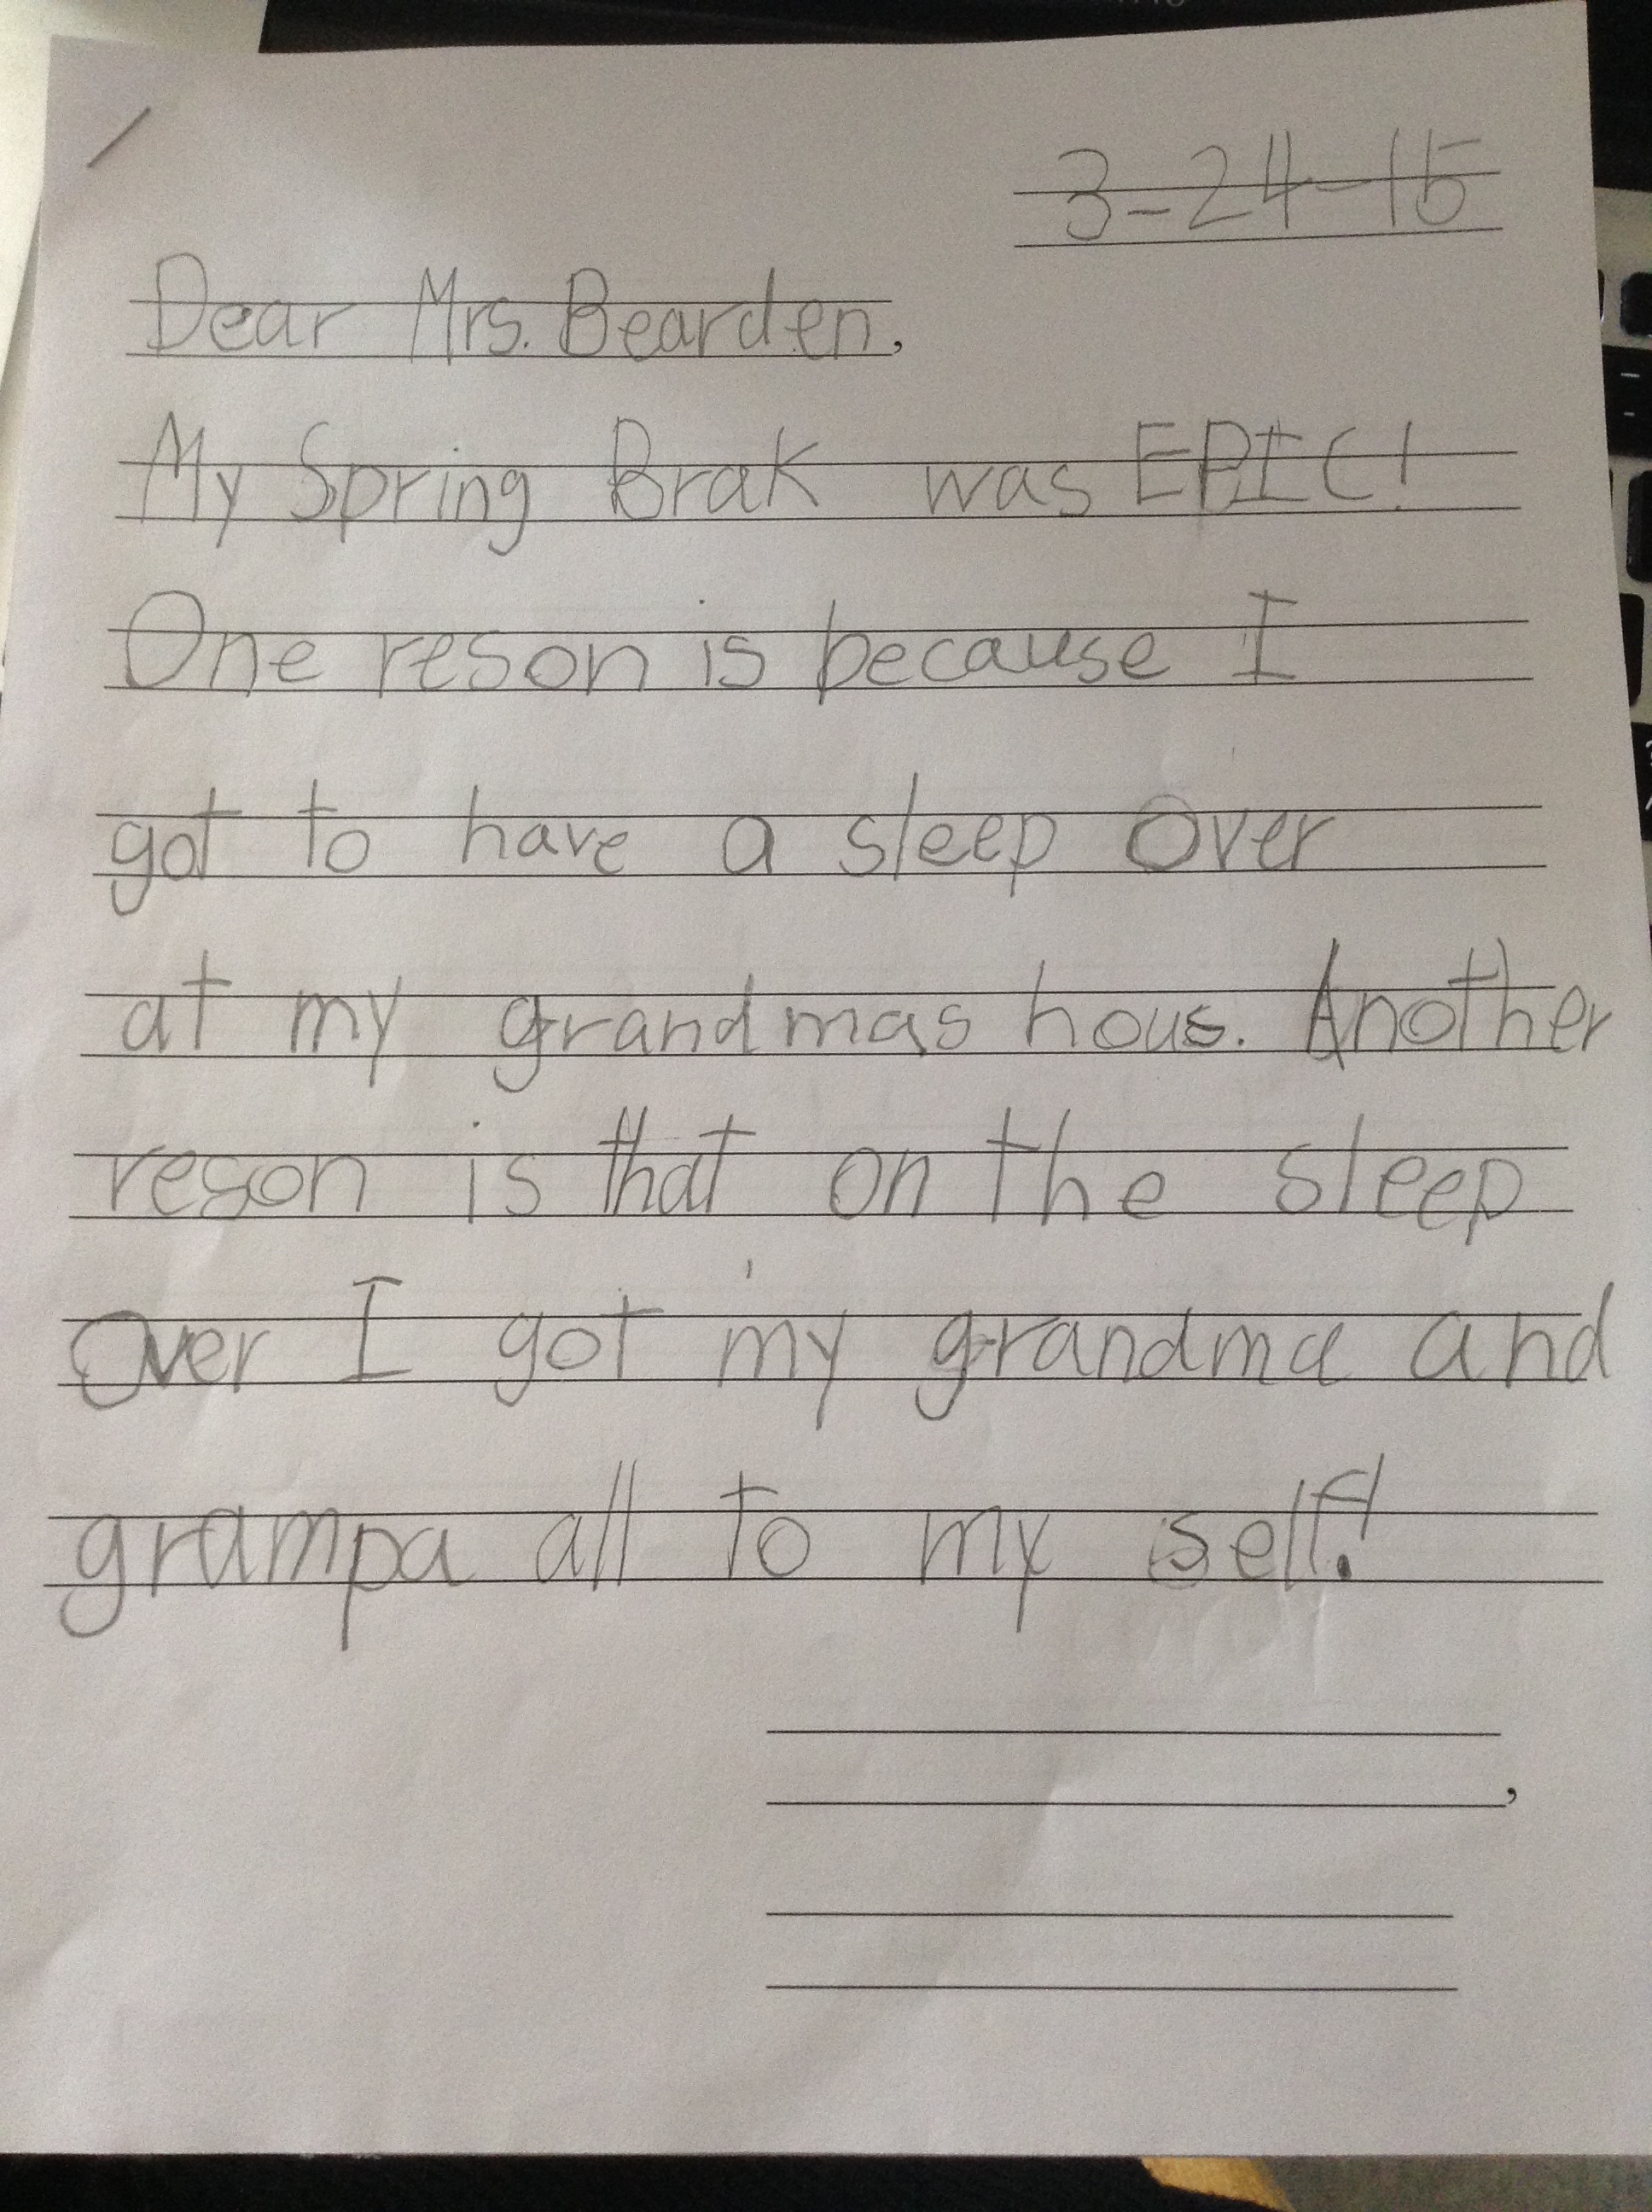 3-24-15
Dear Mrs. Bearden,
My Spring Brak was EPIC!
One reson is because I
got to have a sleep over
at my grandmas hous. Another
reson is that on the sleep
over I got my grandma and
grampa all to my self!
,